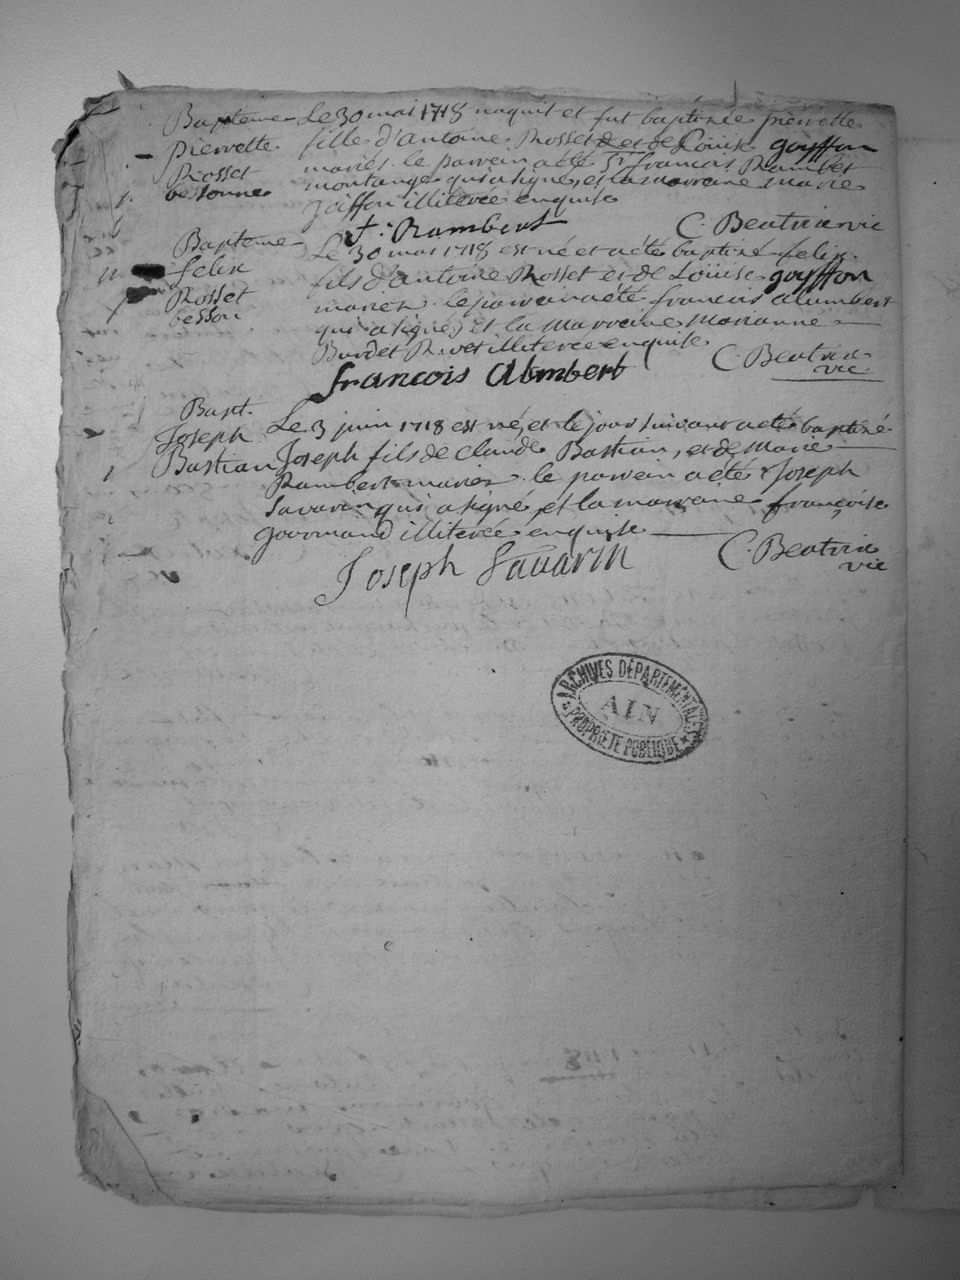 Bapteme
Pierrette
Rosset
bessonne
Le 30 mai 1718 naquit et fut baptisée pierrette
fille d'antoine Rosset et de Loüise goyffon
mariés. le parrain a été Sr francois Rambert
montange qui a signé, et la marraine marie
goiffon illiterée enquise
f: Rambert
C. Beatrix vic
Bapteme
felix
Rosset
besson
Le 30 mai 1718 est né et a été baptisé felix
fils d'antoine Rosset et de Loüise goyffon
mariez. le parrain a été francois alumbert
qui a signé, et la marraine marianne
Burdet illiterée enquise
francois Alumbert
C. Beatrix
vic
Bapt.
Joseph
Bastian
Le 3 juin 1718 est né, et le jour suivant a été baptisé
Joseph fils de claude Bastian, et de Marie
Rambert mariez. le parrain a été Joseph
Savarin qui a signé, et la marraine françoise
gourmand illiterée enquise
Joseph Sauarin
C. Beatrix
vic
ARCHIVES DÉPARTEMENTALES
AIN
PROPRIÉTÉ PUBLIQUE